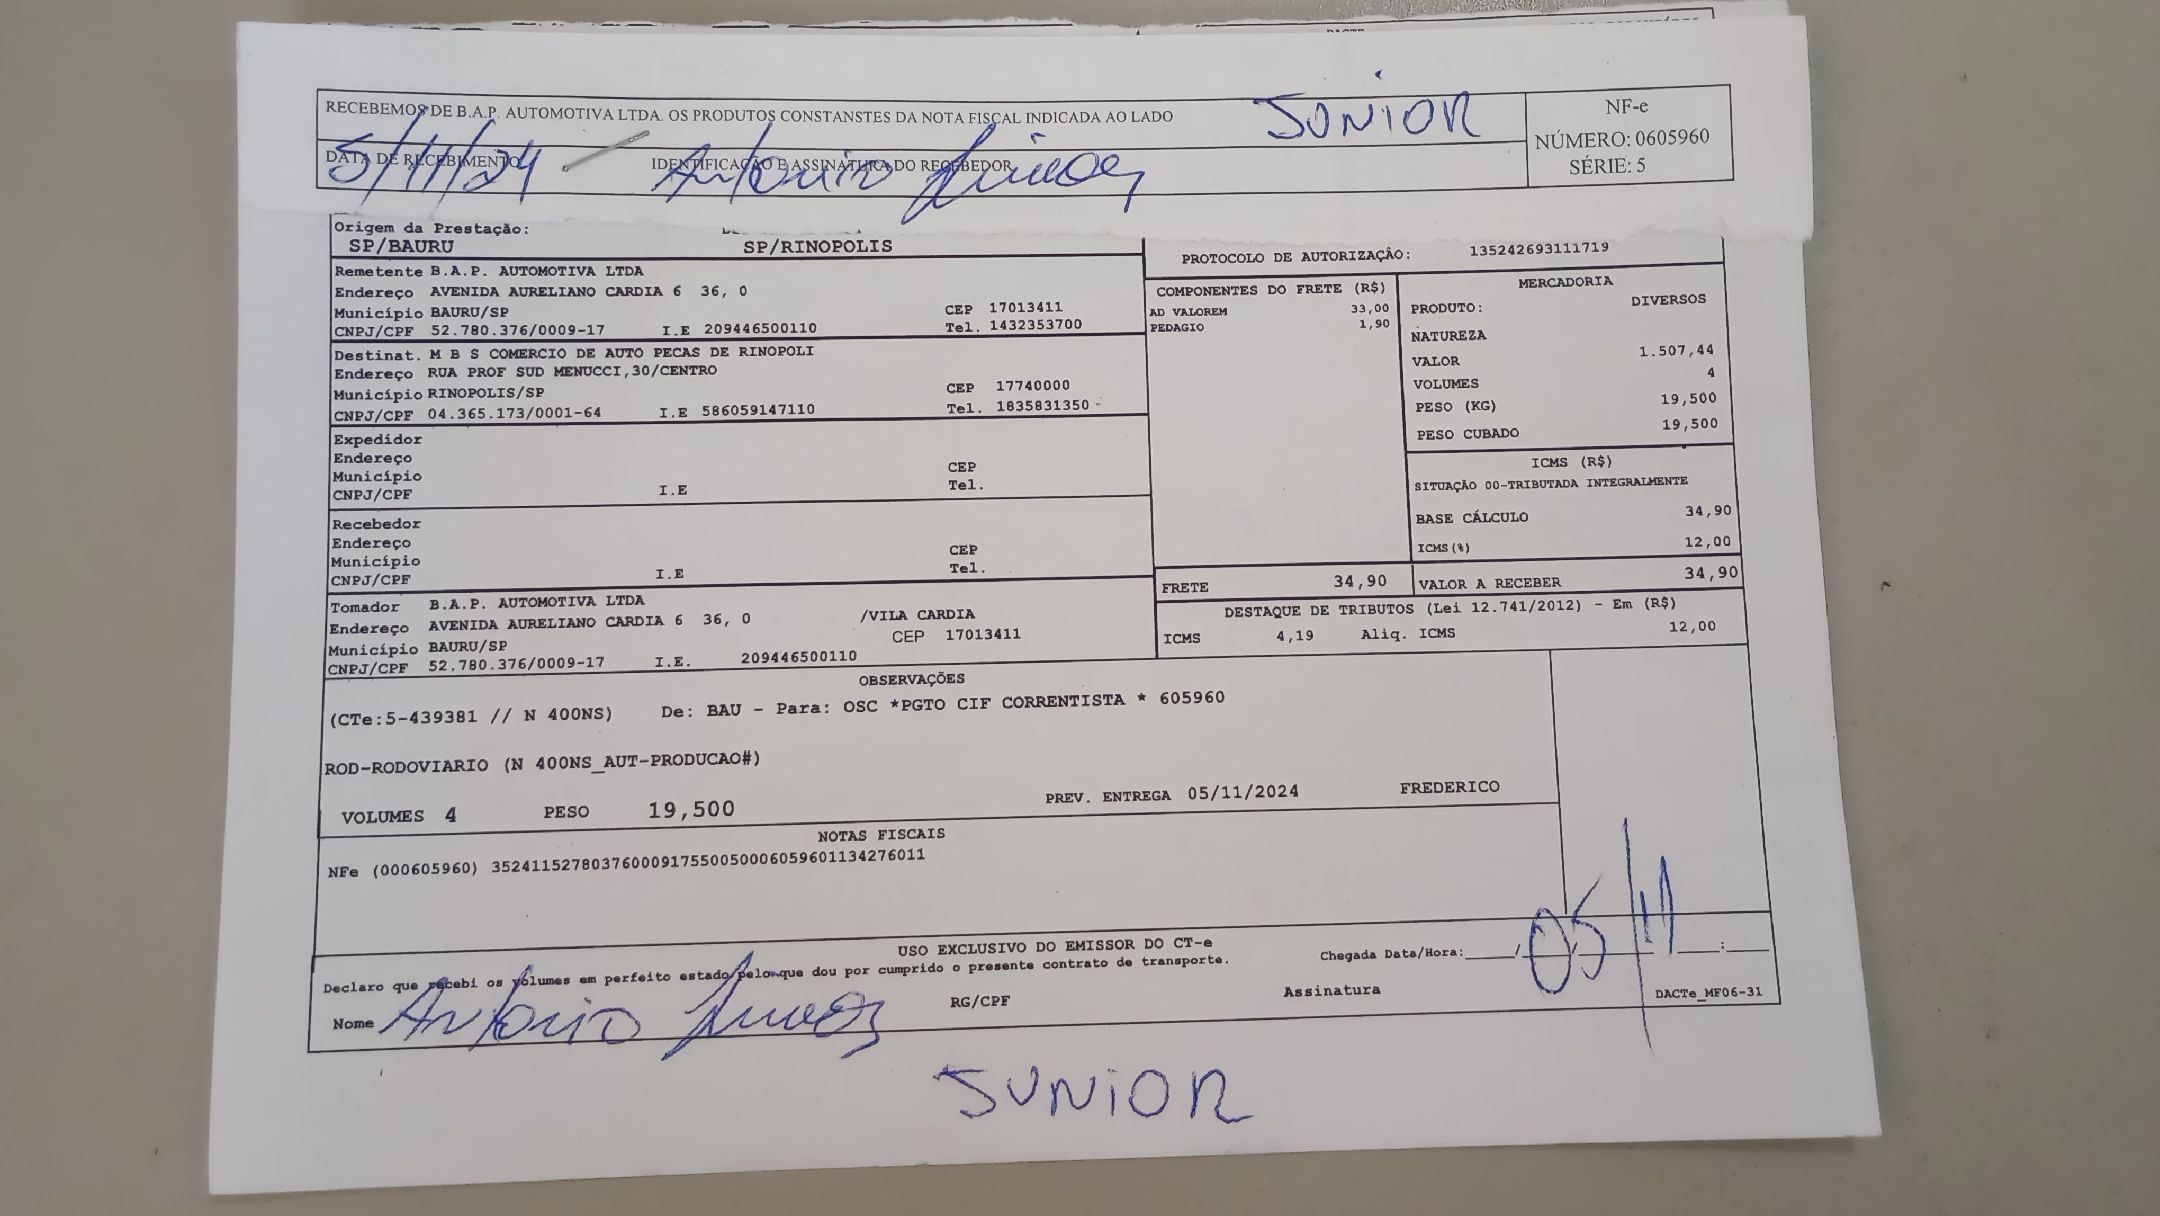 RECEBEMOS DE B.A.P. AUTOMOTIVA LTDA. OS PRODUTOS CONSTANSTES DA NOTA FISCAL INDICADA AO LADO
JUNIOR
NF-e
NÚMERO: 0605960
SÉRIE: 5
DATA DE RECEBIMENTO
5/11/24
IDENTIFICAÇÃO E ASSINATURA DO RECEBEDOR
Antonio
Origem da Prestação:
SP/BAURU SP/RINOPOLIS
PROTOCOLO DE AUTORIZAÇÂO: 135242693111719
Remetente B.A.P. AUTOMOTIVA LTDA
Endereço AVENIDA AURELIANO CARDIA 6 36, 0
Município BAURU/SP CEP 17013411
CNPJ/CPF 52.780.376/0009-17 I.E 209446500110 Tel. 1432353700
Destinat. M B S COMERCIO DE AUTO PECAS DE RINOPOLI
Endereço RUA PROF SUD MENUCCI,30/CENTRO
Município RINOPOLIS/SP CEP 17740000
CNPJ/CPF 04.365.173/0001-64 I.E 586059147110 Tel. 1835831350
Expedidor
Endereço
Município CEP
CNPJ/CPF I.E Tel.
Recebedor
Endereço
Município CEP
CNPJ/CPF I.E Tel.
Tomador B.A.P. AUTOMOTIVA LTDA
Endereço AVENIDA AURELIANO CARDIA 6 36, 0 /VILA CARDIA
Município BAURU/SP CEP 17013411
CNPJ/CPF 52.780.376/0009-17 I.E. 209446500110
COMPONENTES DO FRETE (R$)
AD VALOREM 33,00
PEDAGIO 1,90
MERCADORIA
PRODUTO: DIVERSOS
NATUREZA
VALOR 1.507,44
VOLUMES 4
PESO (KG) 19,500
PESO CUBADO 19,500
ICMS (R$)
SITUAÇÃO 00-TRIBUTADA INTEGRALMENTE
BASE CÁLCULO 34,90
ICMS(%) 12,00
FRETE 34,90 VALOR A RECEBER 34,90
DESTAQUE DE TRIBUTOS (Lei 12.741/2012) - Em (R$)
ICMS 4,19 Aliq. ICMS 12,00
OBSERVAÇÕES
(CTe:5-439381 // N 400NS) De: BAU - Para: OSC *PGTO CIF CORRENTISTA * 605960
ROD-RODOVIARIO (N 400NS_AUT-PRODUCAO#)
VOLUMES 4 PESO 19,500 PREV. ENTREGA 05/11/2024 FREDERICO
NOTAS FISCAIS
NFe (000605960) 35241152780376000917550050006059601134276011
USO EXCLUSIVO DO EMISSOR DO CT-e
Declaro que recebi os volumes em perfeito estado pelo que dou por cumprido o presente contrato de transporte.
Chegada Data/Hora: ____/____/____ ____:____
05/11
Nome Antonio RG/CPF Assinatura
DACTe_MF06-31
JUNIOR